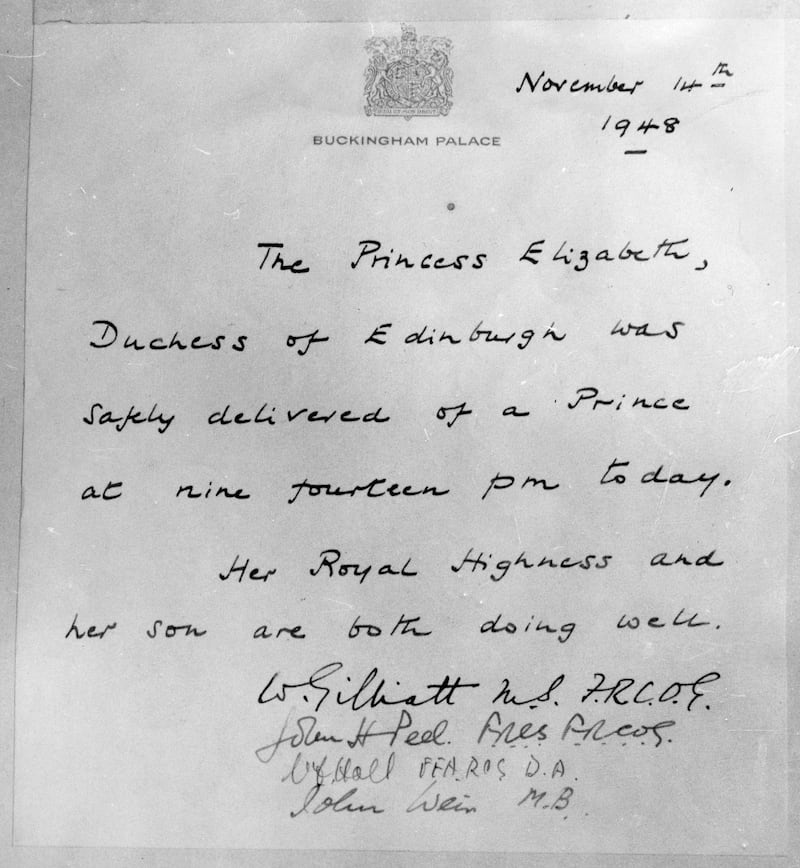 November 14th
1948
BUCKINGHAM PALACE
The Princess Elizabeth,
Duchess of Edinburgh was
safely delivered of a Prince
at nine fourteen pm today.
Her Royal Highness and
her son are both doing well.
W. Gilliatt M.S. F.R.C.O.G.
John H Peel. F.R.C.S F.R.C.O.G.
Hall F.F.A.R.C.S D.A.
John Weir M.B.